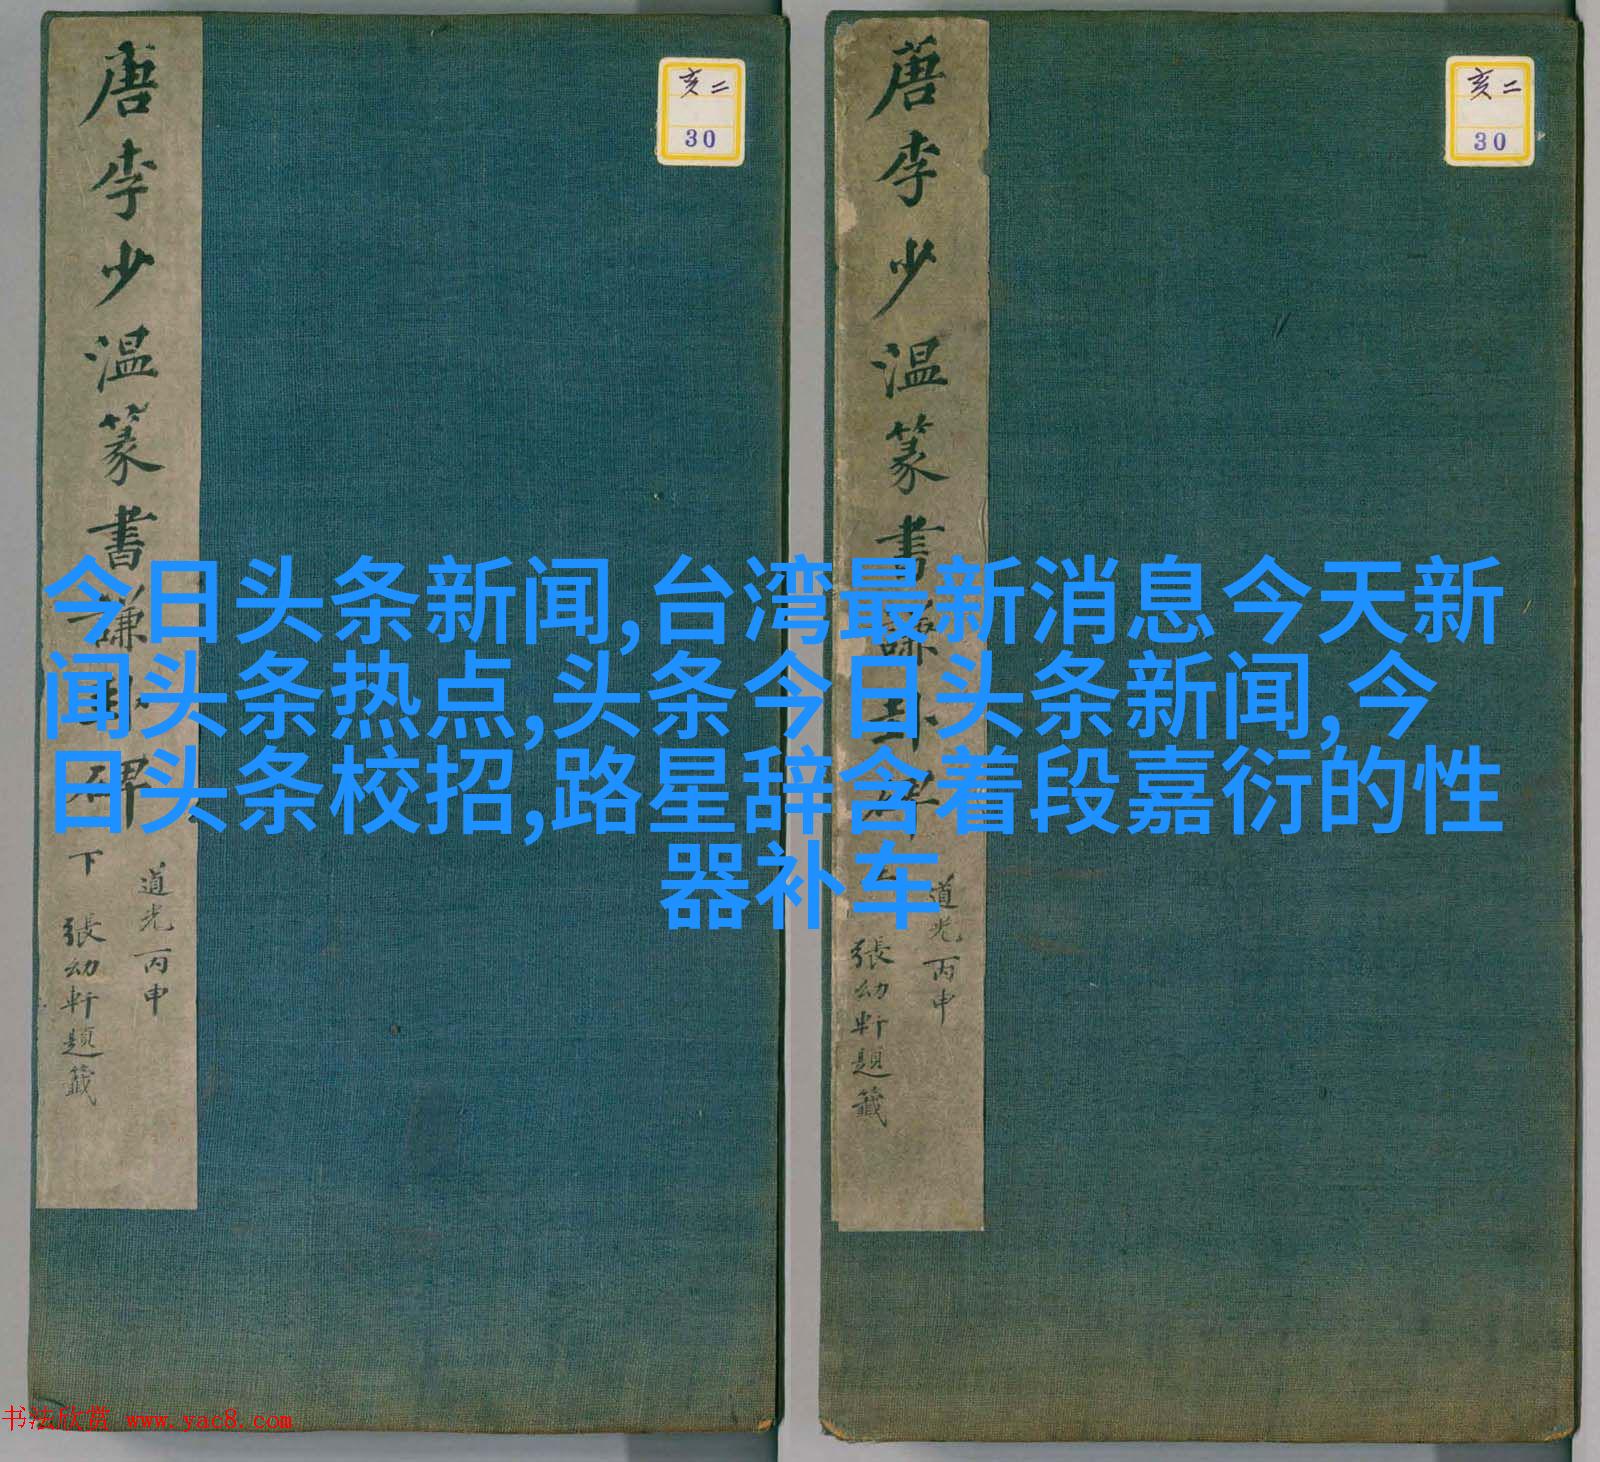 唐李少温篆書謙卦碑 下
道光丙申
張幼軒題籤
亥二
30
唐李少温篆書謙卦碑
道光丙申
張幼軒題籤
亥二
30
今日头条新闻,台湾最新消息今天新
闻头条热点,头条今日头条新闻,今
日头条校招,路星辞含着段嘉衍的性
器补车
书法欣赏 www.yac8.com